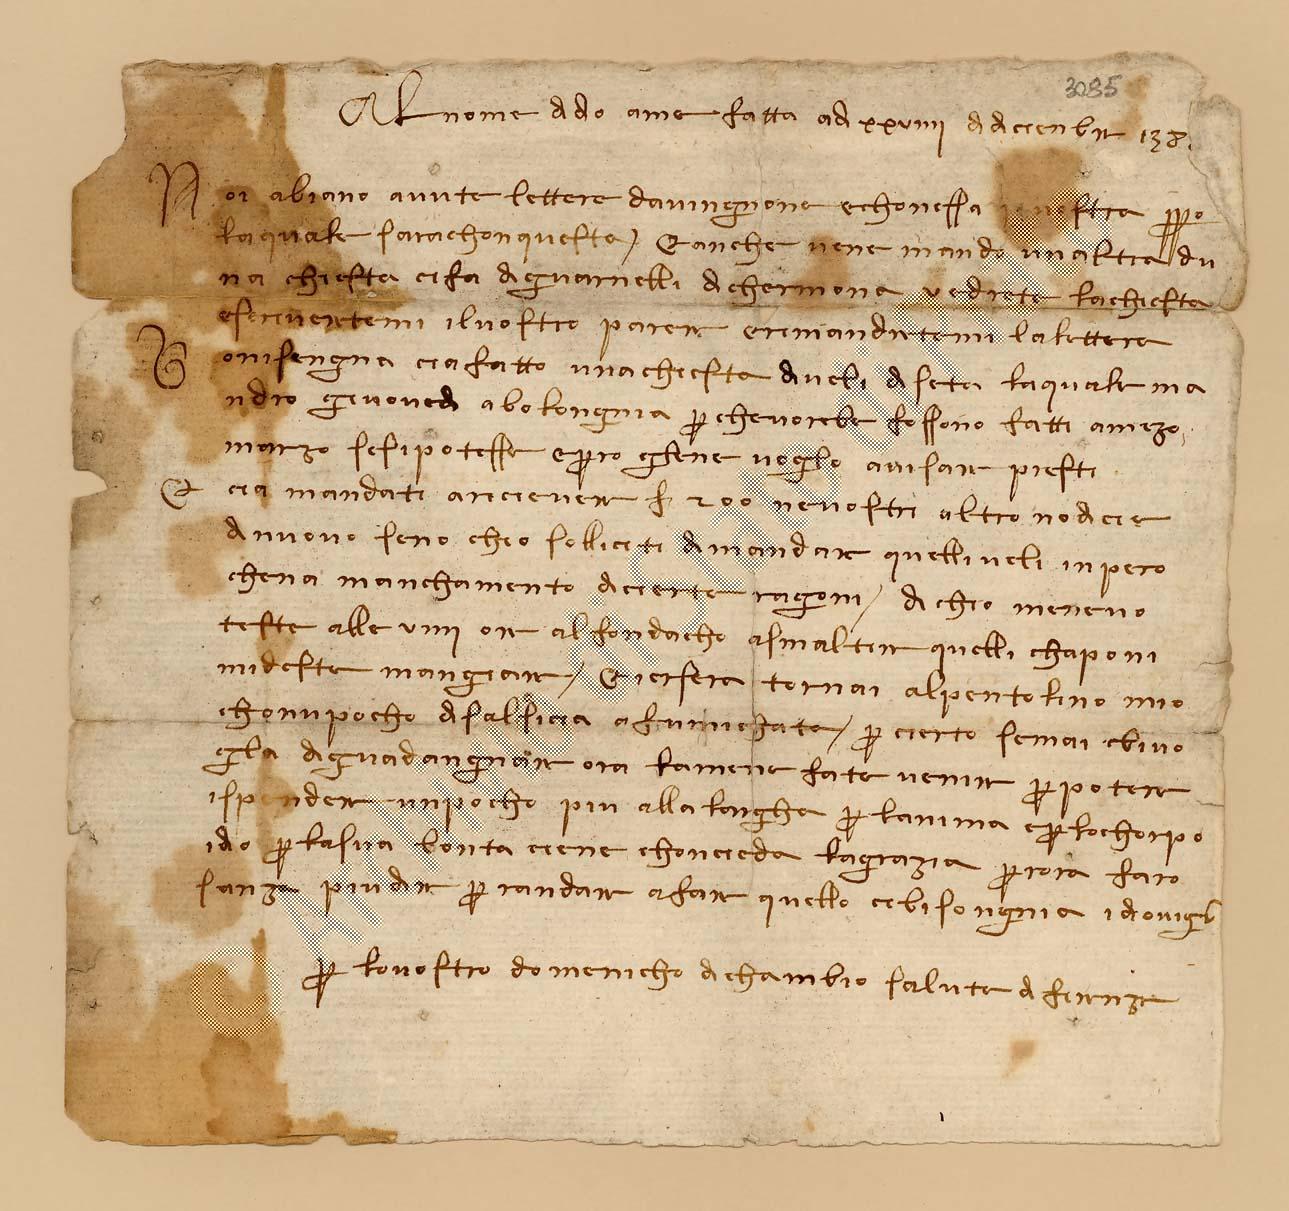 3085
Al nome d dio ame fatta ad xxviiii d diciembr 138
Noi abiano avute lettere davingnone e chon essa vostra
la quale sara chon queste / Et anche vene mando un altra d u
na chiesta ci fa d guarnelli d chermona vedrete la chiesta
e scrivertemi il vostro parer e rimandrtemi la lettera
Bonisengna ci a fatto una chiesta d veli d seta la quale ma
ndio giovedi a bolongnia p che vorebe fossono fatti a mezo
marzo se si potesse e pro gliene voglio avisar presti
Et ci a mandati a riciever f 200 ne vostri altro no dicie
d nuovo seno ch io solleciti d mandar quelli veli inpero
che n a manchamento d cierte ragoni / d ch io me ne vo
teste alle viiii or al fondacho a smaltir quelli chaponi
mi deste mangiar / Et iersera tornai al pentolino mio
chon u pocho d salsicia afumichata / p cierto se mai ebi vo
glia d guadangniar ora la me ne fate venir p poter
ispender un pocho piu alla largha p l anima e p lo chorpo
idio p la sua bonta ciene chonceda la grazia p rora faro
sanza piu dir p randar a far quello ci bisongnia idio vi g
p lo vostro domenicho d chambio salute d firenze